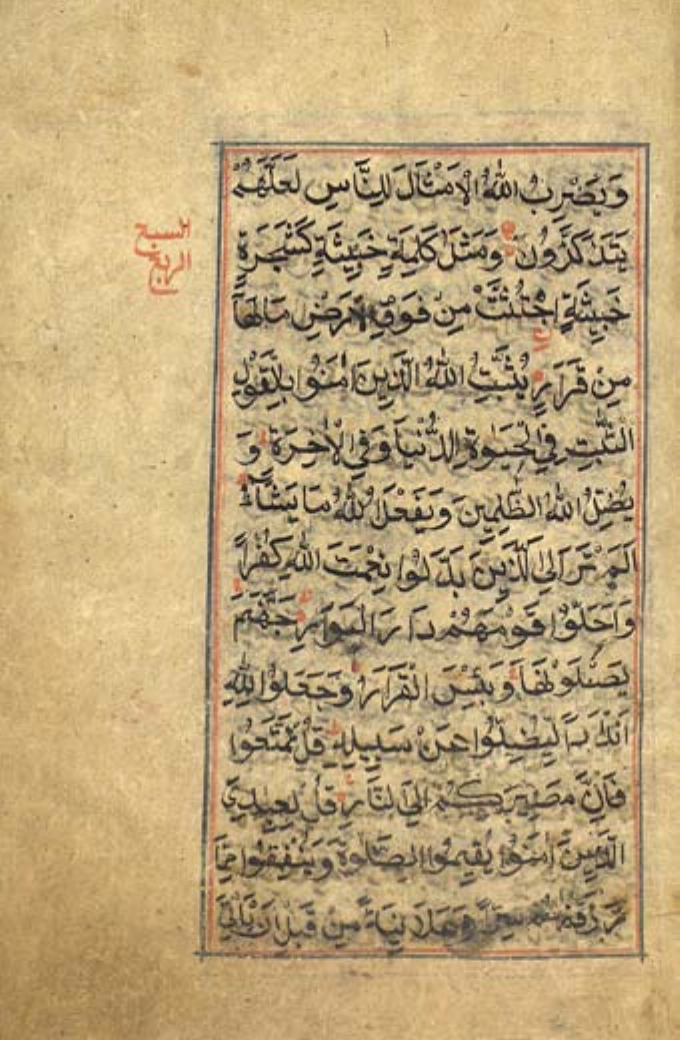 وَيَضْرِبُ اللهُ الْاَمْثَالَ لِلنَّاسِ لَعَلَّهُمْ
يَتَذَكَّرُونَ وَمَثَلُ كَلِمَةٍ خَبِيثَةٍ كَشَجَرَةٍ
خَبِيثَةٍ اجْتُثَّتْ مِنْ فَوْقِ الْاَرْضِ مَالَهَا
مِنْ قَرَارٍ يُثَبِّتُ اللهُ الَّذِينَ اٰمَنُوا بِالْقَوْلِ
الثَّابِتِ فِي الْحَيٰوةِ الدُّنْيَا وَفِي الْاٰخِرَةِ وَ
يُضِلُّ اللهُ الظّٰلِمِينَ وَيَفْعَلُ اللهُ مَا يَشَآءُ
اَلَمْ تَرَ اِلَى الَّذِينَ بَدَّلُوا نِعْمَتَ اللهِ كُفْرًا
وَاَحَلُّوْا قَوْمَهُمْ دَارَ الْبَوَارِ جَهَنَّمَ
يَصْلَوْنَهَا وَبِئْسَ الْقَرَارُ وَجَعَلُوْا لِلّٰهِ
اَنْدَادًا لِيُضِلُّوا عَنْ سَبِيلِهِ قُلْ تَمَتَّعُوا
فَاِنَّ مَصِيرَكُمْ اِلَى النَّارِ قُلْ لِعِبَادِيَ
الَّذِينَ اٰمَنُوْا يُقِيمُوا الصَّلٰوةَ وَيُنْفِقُوا مِمَّا
رَزَقْنٰهُمْ سِرًّا وَعَلَانِيَةً مِنْ قَبْلِ اَنْ يَاْتِيَ
السبع
الربع